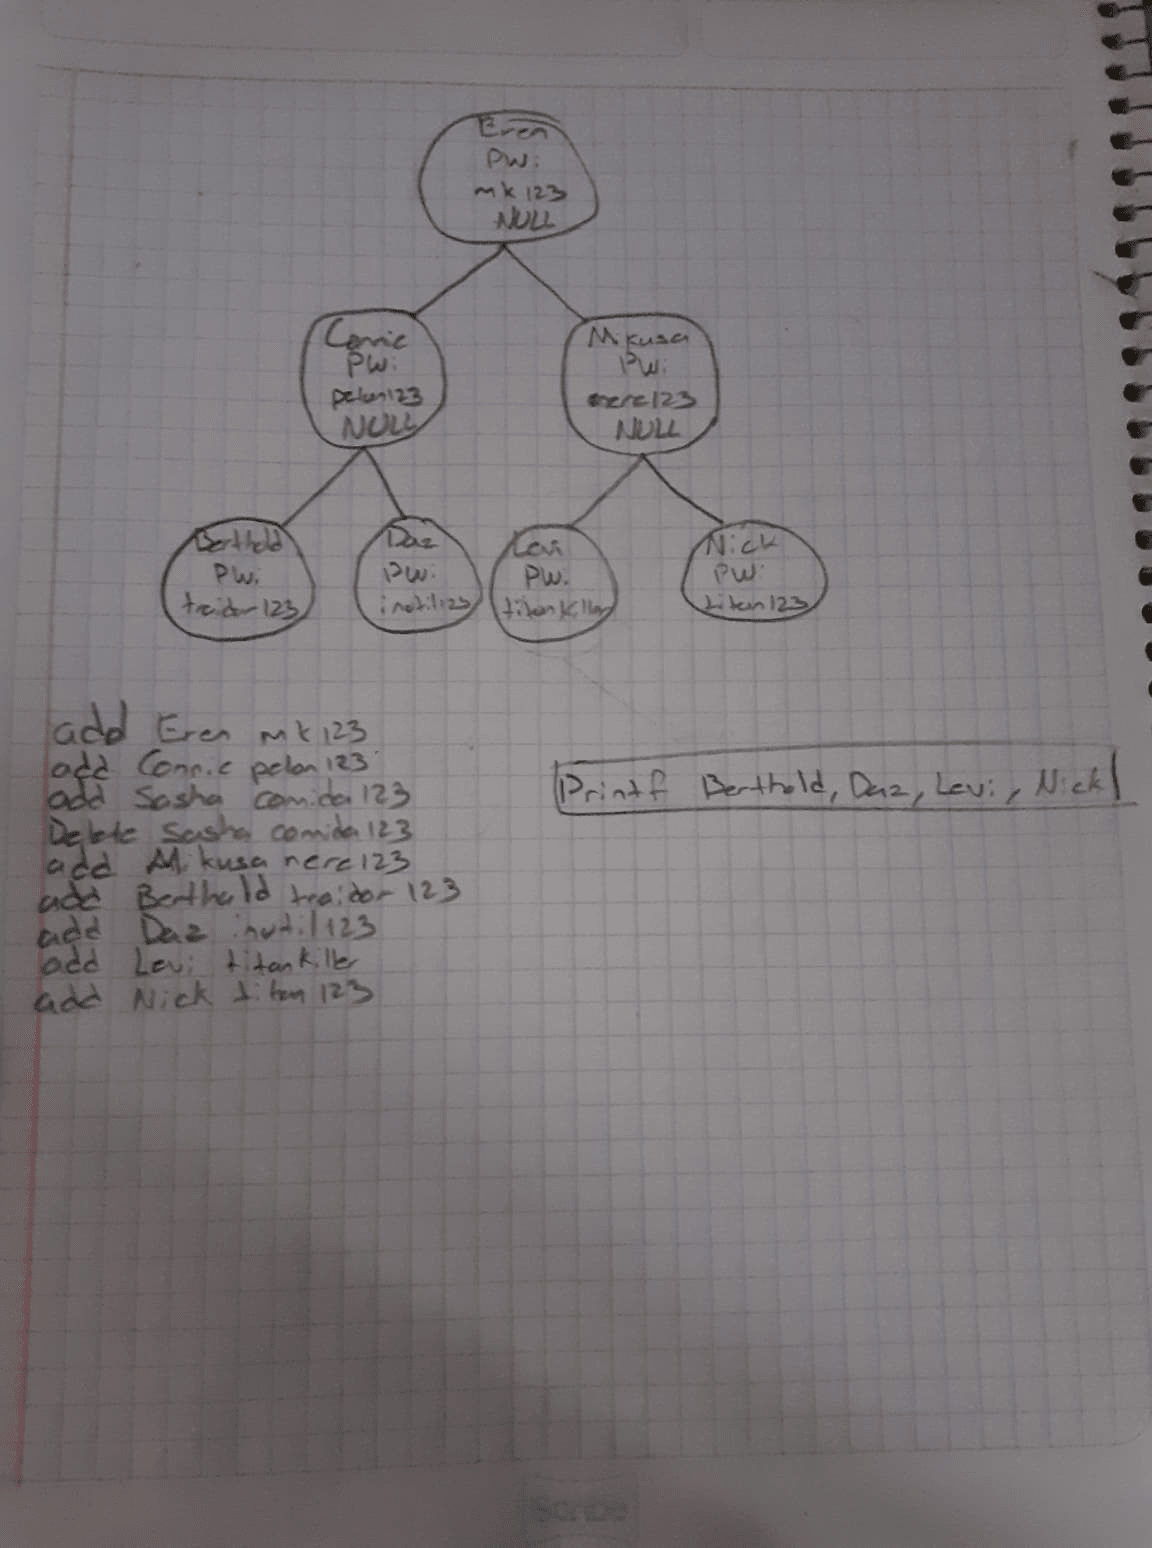 Eren
PW:
mk123
NULL
Connie
PW:
pelon123
NULL
Mikusa
PW:
nere123
NULL
Berthold
PW:
traidor123
Daz
PW:
inutil123
Levi
PW:
titankiller
Nick
PW:
titan123
add Eren mk123
add Connie pelon123
add Sasha comida123
Delete Sasha comida123
add Mikusa nere123
add Berthold traidor123
add Daz inutil123
add Levi titankiller
add Nick titan123
Printf Berthold, Daz, Levi, Nick
Scribe